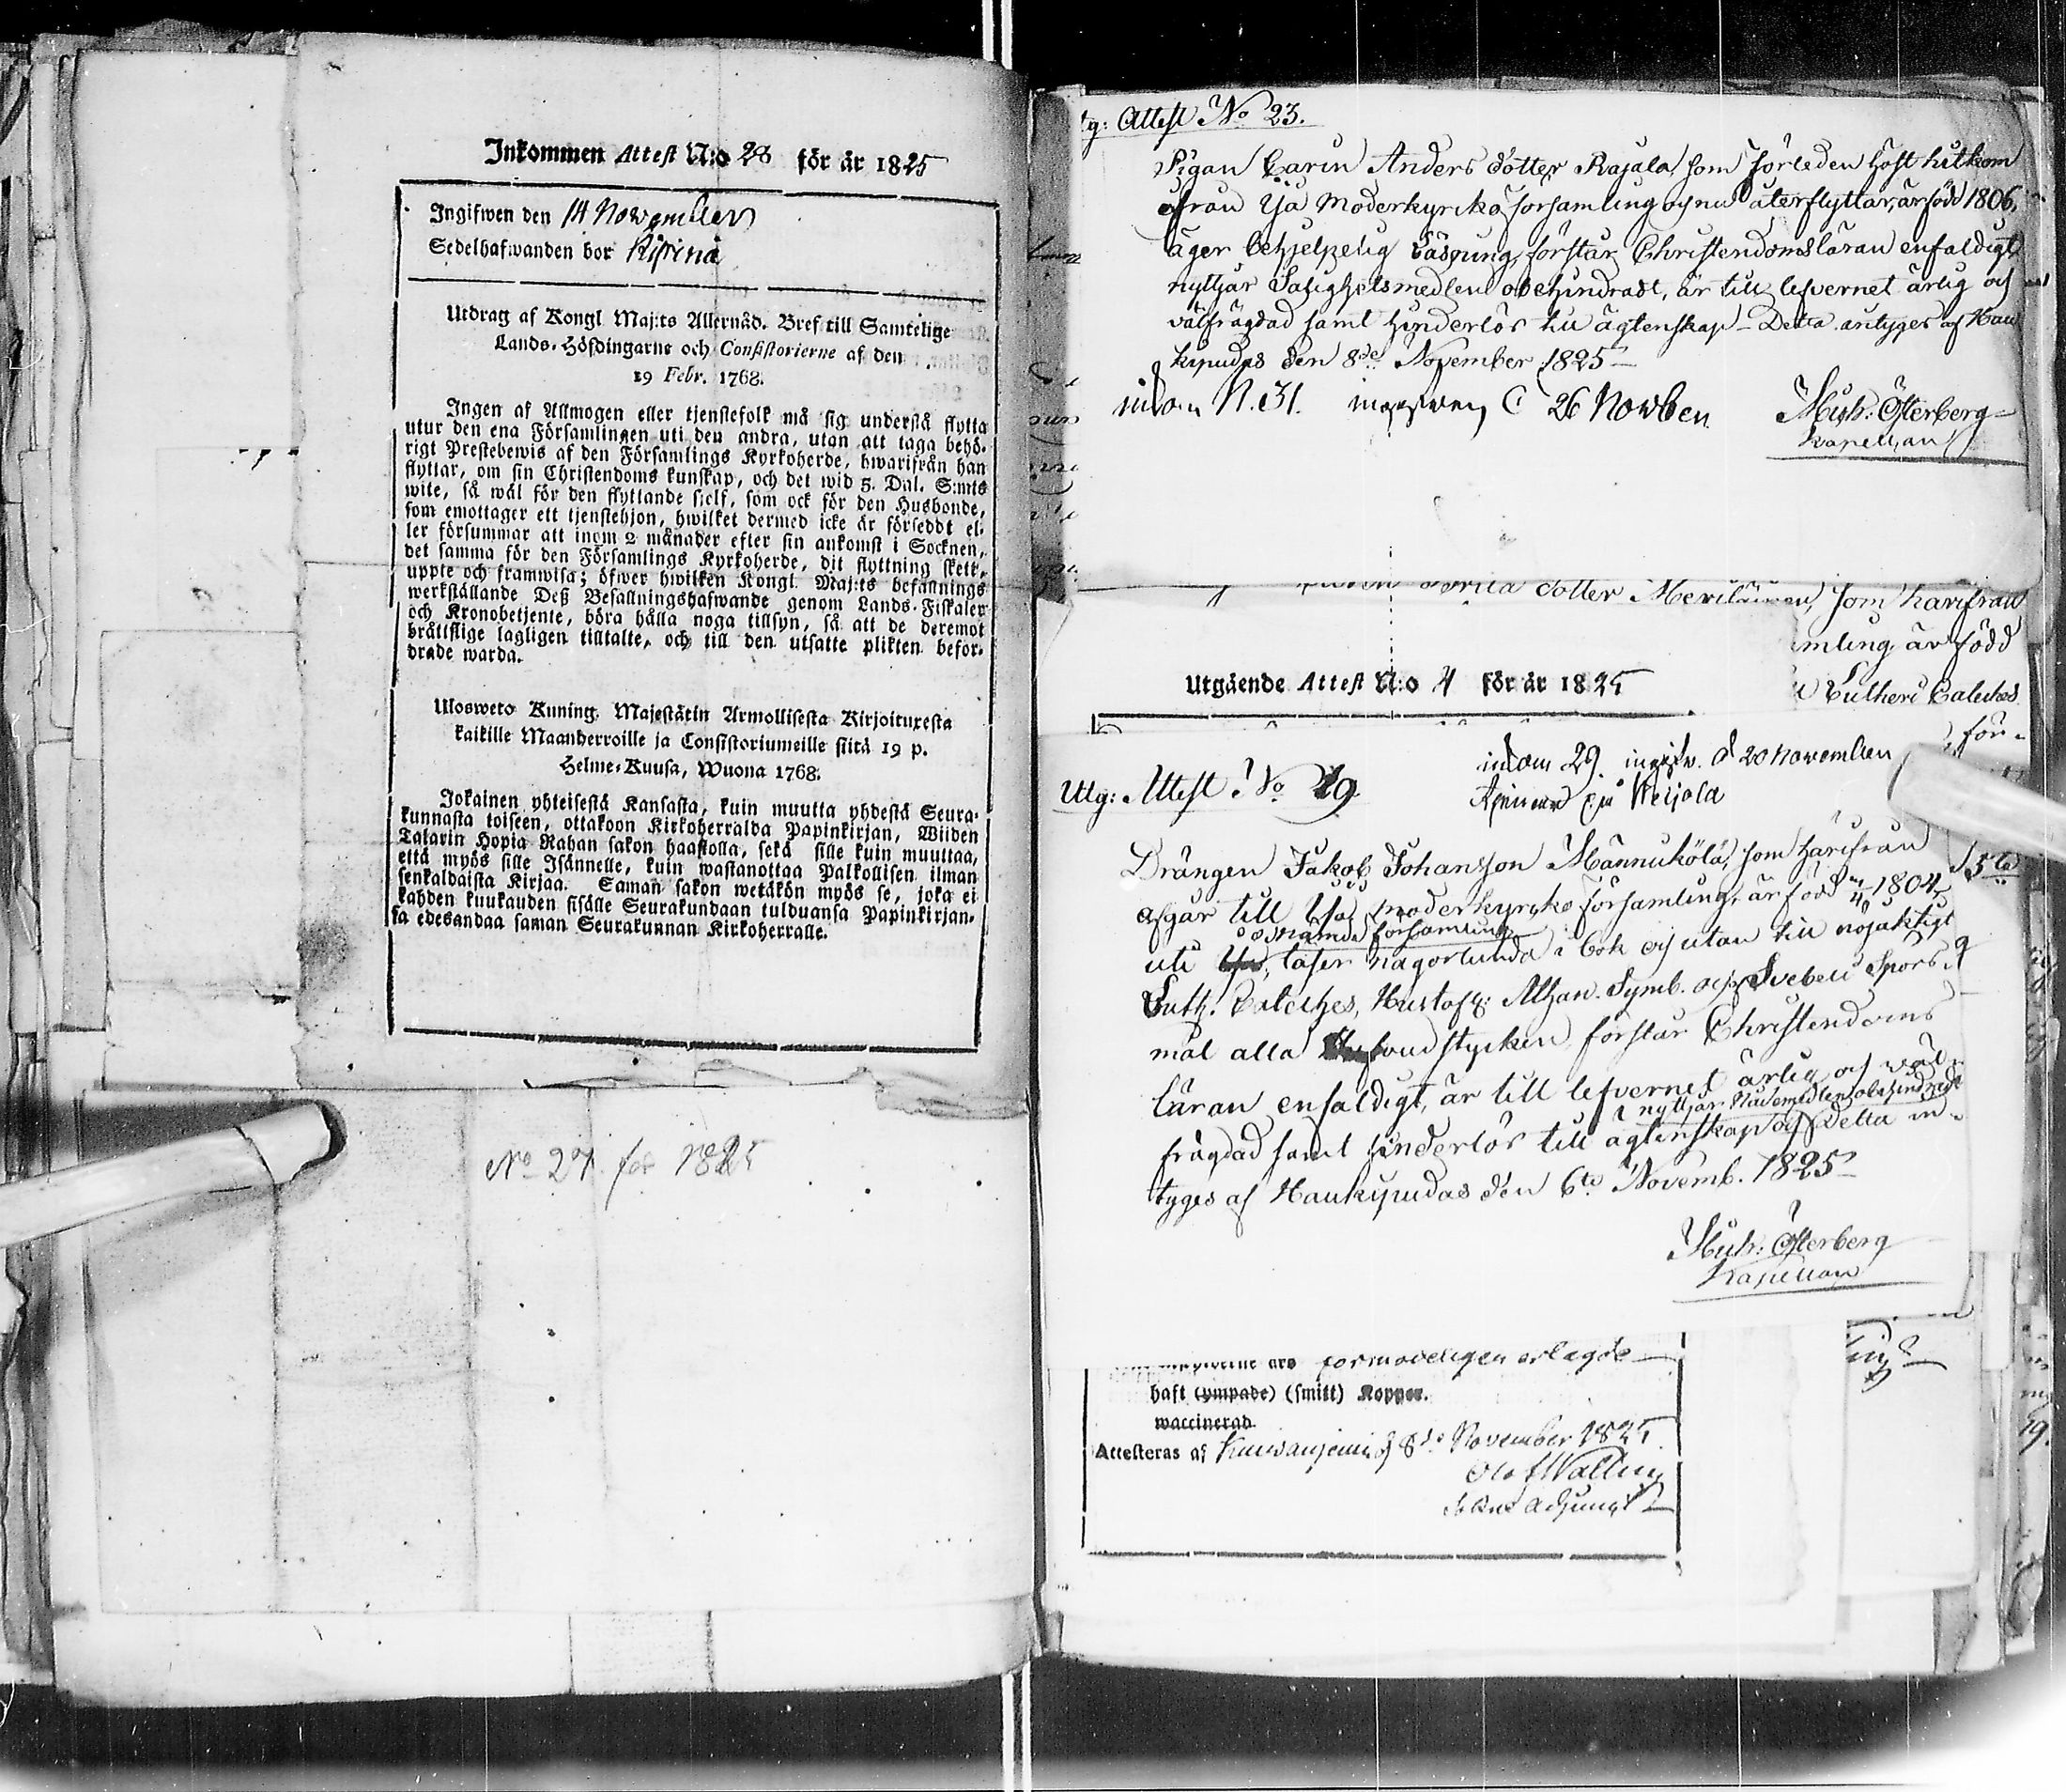 Inkommen Attest N:o 28 för år 1825
Ingifwen den 14 November
Sedelhafwanden bor
Utdrag af Kongl. Maj:ts Allernåd. Bref till Samtelige
Lands-Höfdingarne och Consistorierne af den
19 Febr. 1768.
Ingen af Allmogen eller tjenstefolk må sig understå flytta
utur den ena Församlingen uti den andra, utan att taga behö-
rigt Prestebewis af den Församlings Kyrkoherde, hwarifrån han
flyttar, om sin Christendoms kunskap, och det wid 5. Dal. S:mts
wite, så wäl för den flyttande sielf, som ock för den Husbonde,
som emottager ett tjenstehjon, hwilket dermed icke är försedt el-
ler försummar att inom 2 månader efter sin ankomst i Socknen,
det samma för den Församlings Kyrkoherde, dit flyttning skett,
uppte och framwisa; öfwer hwilken Kongl. Maj:ts befallnings
werkställande Deß Befallningshafwande genom Lands-Fiskaler
och Kronobetjente, böra hålla noga tillsyn, så att de deremot
bråttslige lagligen tilltalte, och till den utsatte plikten beför-
drade warda.
Ulosweto Kuning. Majestätin Armollisesta Kirjoituxesta
kaikille Maanherroille ja Consistoriumeille siitä 19 p.
Helme-Kuusa, Wuona 1768.
Jokainen yhteisestä Kansasta, kuin muutta yhdestä Seura-
kunnasta toiseen, ottakoon Kirkoherralda Papinkirjan, Wiiden
Talarin Hopia Rahan sakon haastolla, sekä sille kuin muuttaa,
että myös sille Isännelle, kuin wastanottaa Palkollisen ilman
senkaldaista Kirjaa. Saman sakon wetäkön myös se, joka ei
kahden kuukauden sisälle Seurakundaan tulduansa Papinkirjan-
sa edesandaa saman Seurakunnan Kirkoherralle.
No 27 för 1825
tg: Attest No 23.
Pigan Carin Anders dotter Rajala, som förleden höst hitkom
ifrån Ijå Moderkyrko församling och nu återflyttar, är född 1806,
äger behjelpelig läsning, förstår Christendomsläran enfaldigt,
nyttjar Salighetsmedlen obehindradt, är till lefvernet ärlig och
välfrägdad samt hinderlös till ägtenskap – Detta intyges af Hau
kipudas den 8de November 1825 –
inkom N. 31. ingifwen d 26 Novben
Österberg
Kapellan
dotter Meriläinen, som härifrån
mling, är född
Lutheri Catechs
för-
Utgående Attest N:o 4 för år 1825
inkom 29. ingifw. d 20 November
Utg: Attest No 19.
Drängen Jakob Johansson Männukölä, som härifrån
afgår till Ijå moderkyrko församling, är född 1804,
nämde församling
uti läser någorlunda i bok och utan till nöjaktigt
Luth. Catechs, Hustafl: Athan. Symb. och Svebeli Spörs-
mål alla hufvudstycken, förstår Christendoms
läran enfaldigt, är till lefvernet ärlig och väl-
nyttjar Nådemedlen obehindradt
frägdad samt hinderlös till ägtenskap och Detta in-
tyges af Haukipudas den 6te Novemb. 1825 –
Österberg
Kapellan
äro förmodeligen erlagde –
haft (ympade) (smitt) Koppor.
waccinerad
Attesteras af Kuivaniemi d 8de November 1825.
Olof Walling
Adjunct